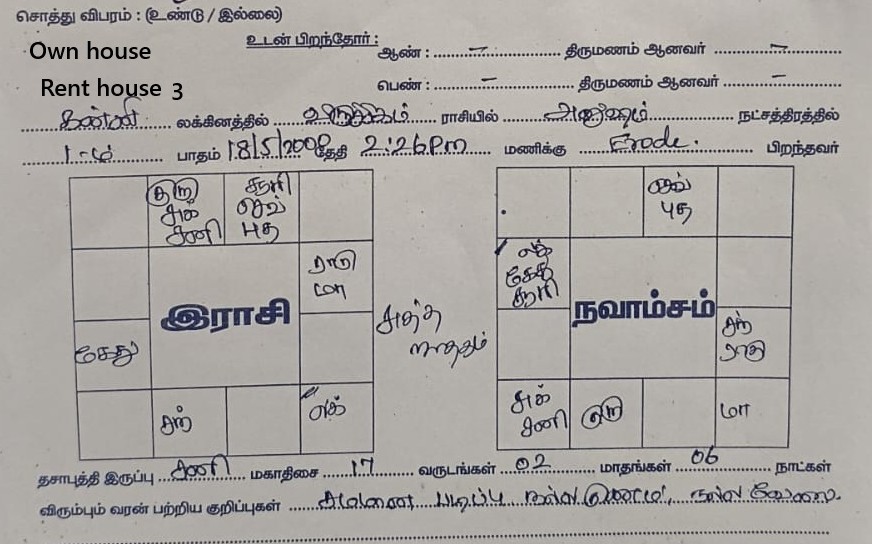 சொத்து விபரம் : (உண்டு / இல்லை)
Own house
உடன் பிறந்தோர் : ஆண் : – திருமணம் ஆனவர் –
Rent house 3
பெண் : – திருமணம் ஆனவர் –
கன்னி லக்கினத்தில் விருச்சிகம் ராசியில் அனுஷம் நட்சத்திரத்தில்
1-ம் பாதம் 18/5/2000 தேதி 2:26 P.m மணிக்கு Erode. பிறந்தவர்
குரு சுக் சனி
சூரி செவ் புத
ராகு மா
இராசி
கேது
சந்
லக்
செவ் புத
லக் கேது சூரி
நவாம்சம்
சந் ராகு
சுக் சனி
குரு
மா
தசாபுத்தி இருப்பு சனி மகாதிசை 17 வருடங்கள் 02 மாதங்கள் 06 நாட்கள்
விரும்பும் வரன் பற்றிய குறிப்புகள் படிப்பு நல்ல குணம், நல்ல வேலை.